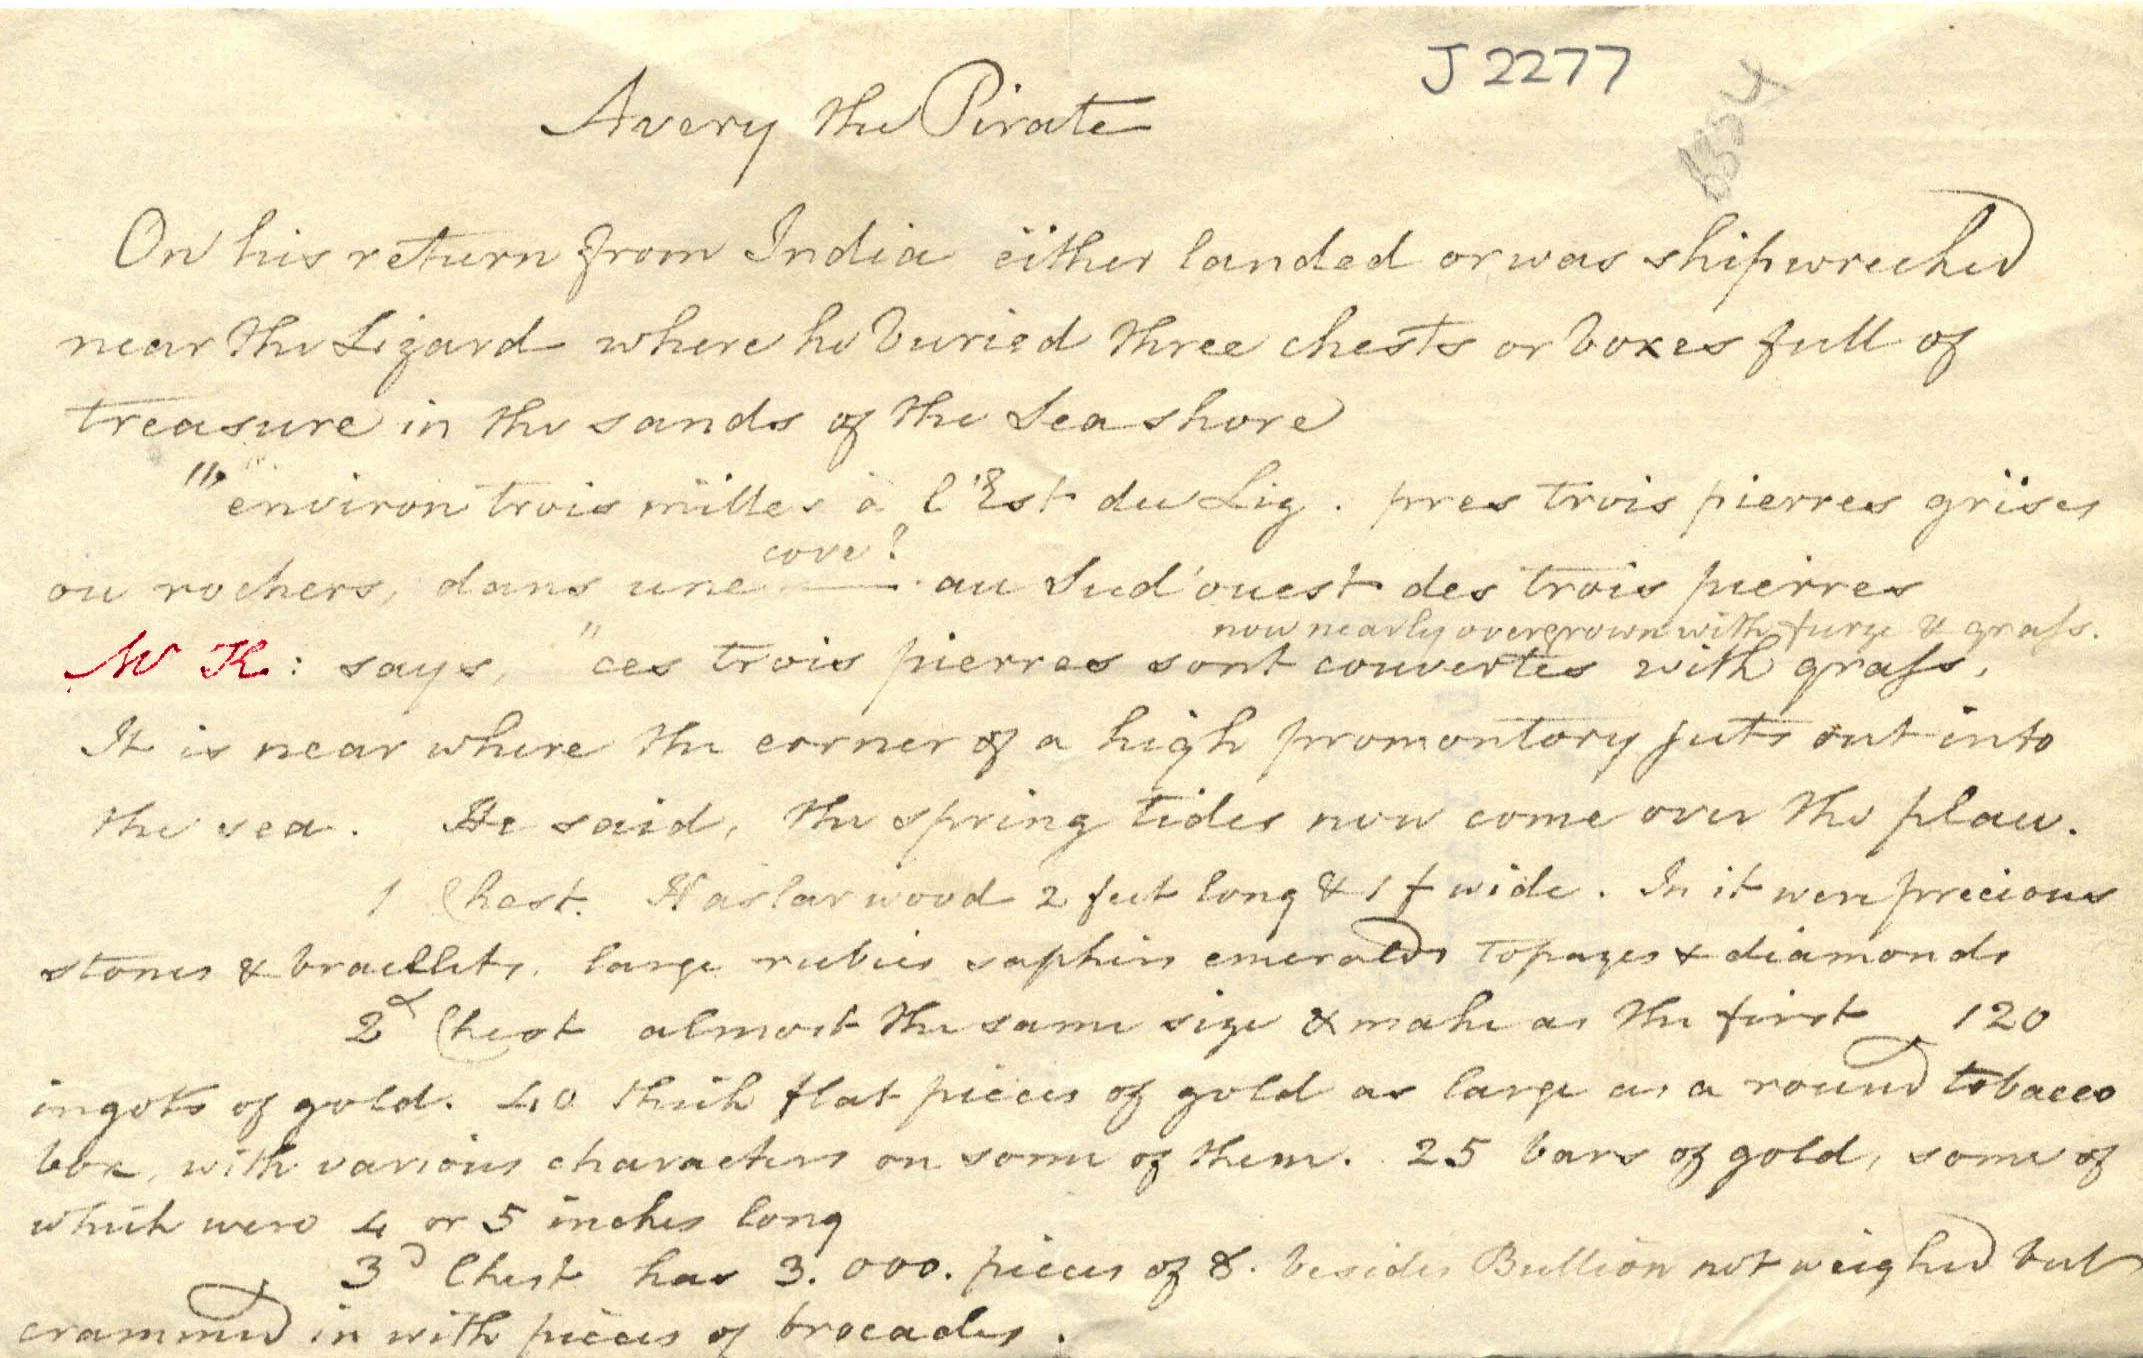 J 2277
Avery the Pirate
On his return from India either landed or was shipwrecked
near the Lizard where he buried three chests or boxes full of
treasure in the sands of the Sea shore
"environ trois milles à l'Est du Liz. pres trois pierres grises
cove?
ou rochers, dans une —— au Sud'ouest des trois pierres
now nearly overgrown with furze & grass.
W K: says, "ces trois pierres sont couvertes with grass.
It is near where the corner of a high promontory juts out into
the sea. He said, the spring tides now come over the place.
1 Chest. Haslar wood 2 feet long & 1 f wide. In it were precious
stones & bracellets. large rubies saphirs emeralds topazes & diamonds
2d Chest almost the same size & make as the first 120
ingots of gold. 40 thick flat pieces of gold as large as a round tobacco
box, with various characters on some of them. 25 bars of gold, some of
which were 4 or 5 inches long
3d Chest has 3.000. pieces of 8. besides Bullion not weighed but
crammed in with pieces of brocades.